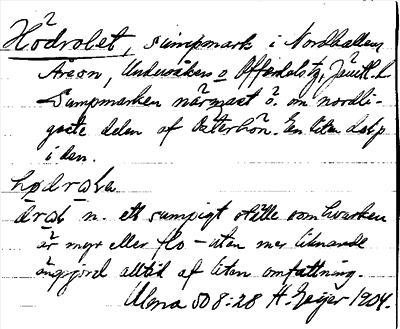 Hödrolet, sumpmark i Nordhallen
Åreon, Undersåker o Offerdals tg, Jämtl. L
Sumpmarken närmast ö. om nordli-
gaste delen af Österhön. En liten dalp
i den.
hødrøla
drøl n. ett sumpigt ställe som hvarken
är myr eller flo – utan mer liknande
ängsjord alltid af liten omfattning.
Ulma 508:28 H. Geijer 1904.